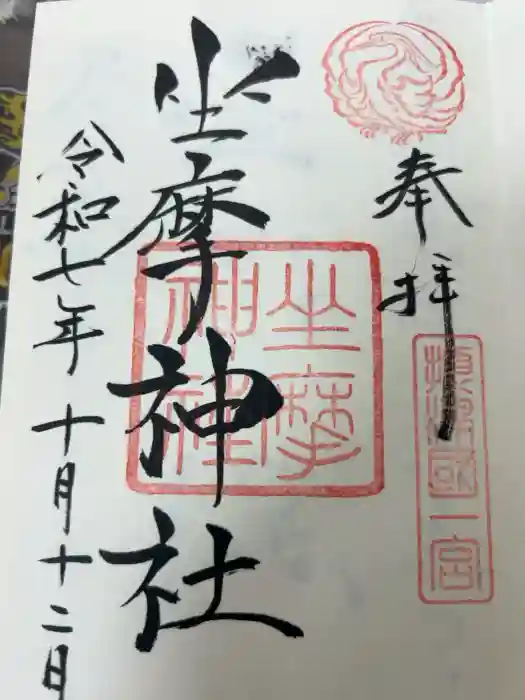 奉拝
摂津國一宮
坐摩神社
坐摩神社
令和七年十月十二日